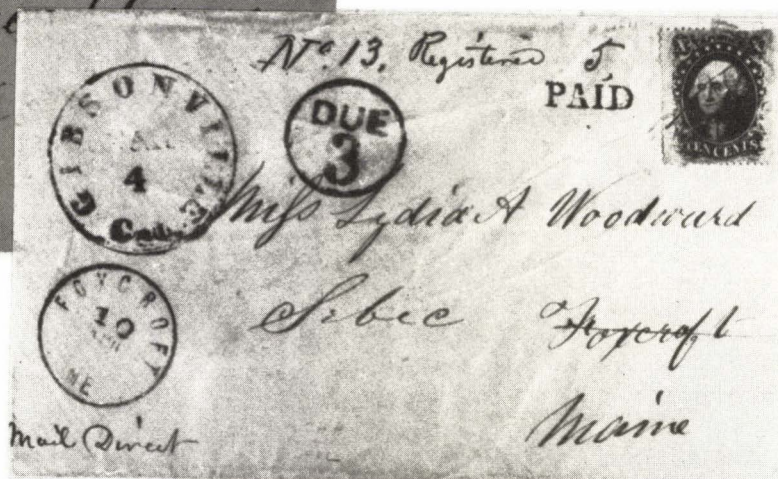 No. 13, Registered 5
PAID
GIBSONVILLE
4
Cal.
DUE
3
TEN CENTS
Miss Lydia A Woodward
Sebec
Foxcroft
Maine
FOXCROFT
10
ME
Mail Direct